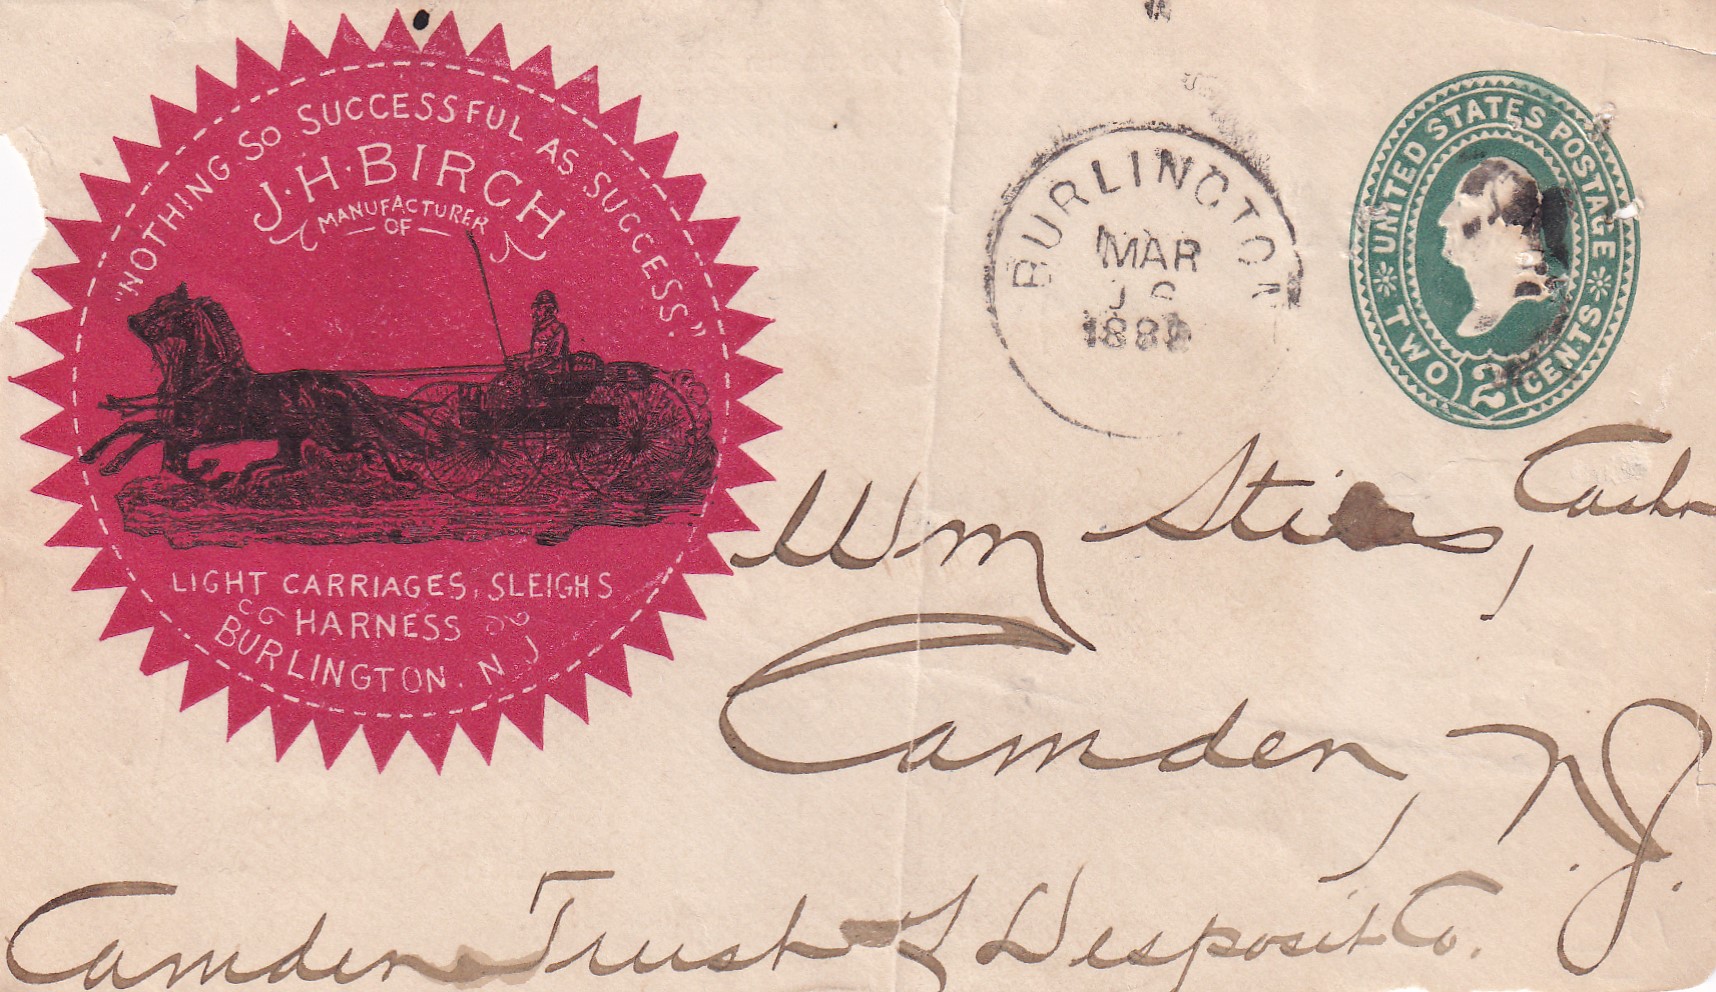 "NOTHING SO SUCCESSFUL AS SUCCESS."
J·H·BIRCH
MANUFACTURER
OF
LIGHT CARRIAGES, SLEIGHS
HARNESS
BURLINGTON. N J
BURLINGTON
MAR
UNITED STATES POSTAGE
TWO CENTS
2
Wm
Camden, N.J.
Camden Trust & Desposit Co.